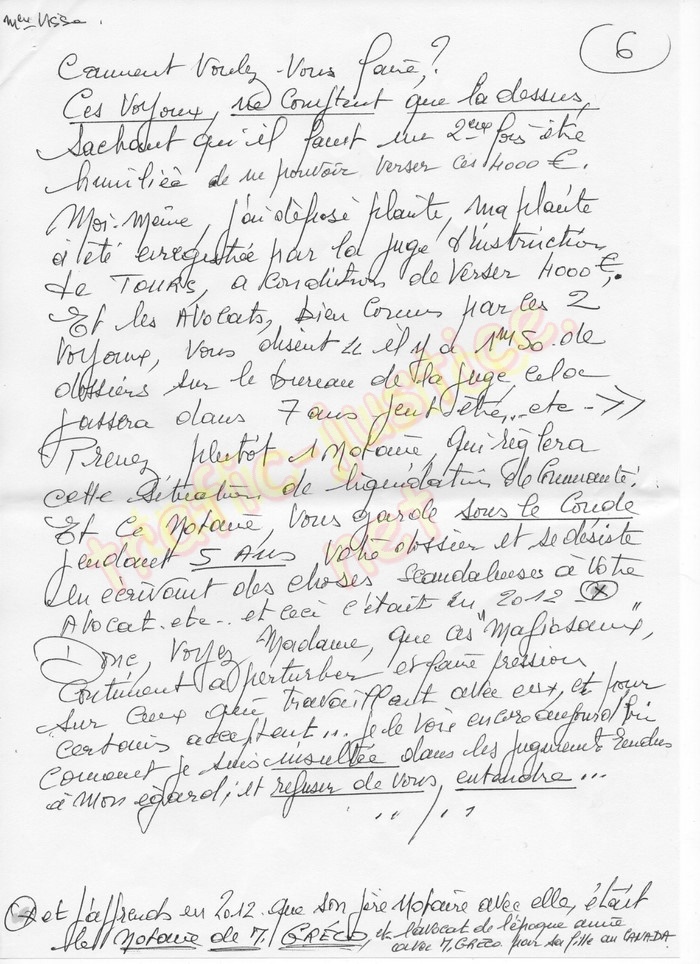 6
Comment Voulez-Vous faire,?
Ces Voyoux, ne Comptent que la dessus,
Sachant qu'il faut une 2ème fois être
humiliée de ne pouvoir verser ces 4000 €.
Moi-même, j'ai déposé plainte, ma plainte
à été enregistrée par la juge d'instruction
de TOURS, a Condition de Verser 4000 €,.
Et les Avocats, bien connus par les 2
Voyoux, vous disent << il y a 1m50 de
dossiers sur le bureau de la juge, cela
passera dans 7 ans peut être... etc ->>
Prenez plutôt 1 Notaire, qui règlera
cette situation de liquidation de Communauté.
Et ce Notaire, vous garde sous le Coude
pendant 5 Ans votre dossier et se désiste
en écrivant des choses scandaleuses à Votre
Avocat. etc... et ceci c'était en 2012 (x)
Donc, Voyez Madame, que ces "Mafiosaux"
Continuent a perturber et faire pression
sur ceux qui travaillant avec eux, et pour
certains acceptent... je le vois encore aujourd'hui
Comment je suis insultée dans les jugements rendus
à mon égard, et refuser de vous, entendre...
../..
(x) et j'apprends en 2012. que son père Notaire avec elle, était
le Notaire de M. GRECO, et l'avocat de l'époque amie
avec M. GRECO par sa fille au CANADA
trafic-justice.
net